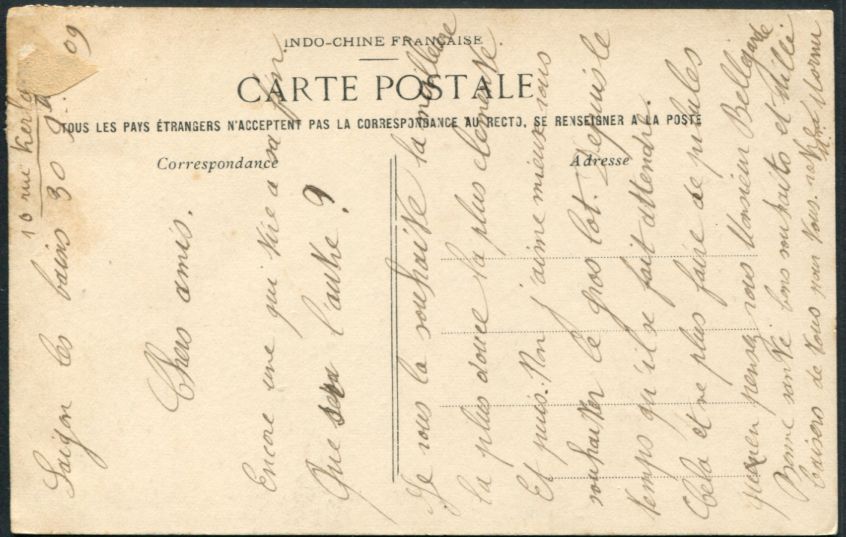 INDO-CHINE FRANÇAISE
CARTE POSTALE
TOUS LES PAYS ÉTRANGERS N'ACCEPTENT PAS LA CORRESPONDANCE AU RECTO, SE RENSEIGNER A LA POSTE
Correspondance
Adresse
10 rue
Saigon les bains 30 9 09
Chers amis.
Encore une qui tire à sa fin.
Que sera l'autre ?
Je vous la souhaite la meilleure
la plus douce la plus clémente.
Et puis. Non j'aime mieux vous
souhaiter le gros lot. Depuis le
temps qu'il se fait attendre.
Cela et ne plus faire de pilules
qu'en pensez vous Monsieur Bellegarde
Bonne santé bons souhaits et mille
baisers de nous pour vous.